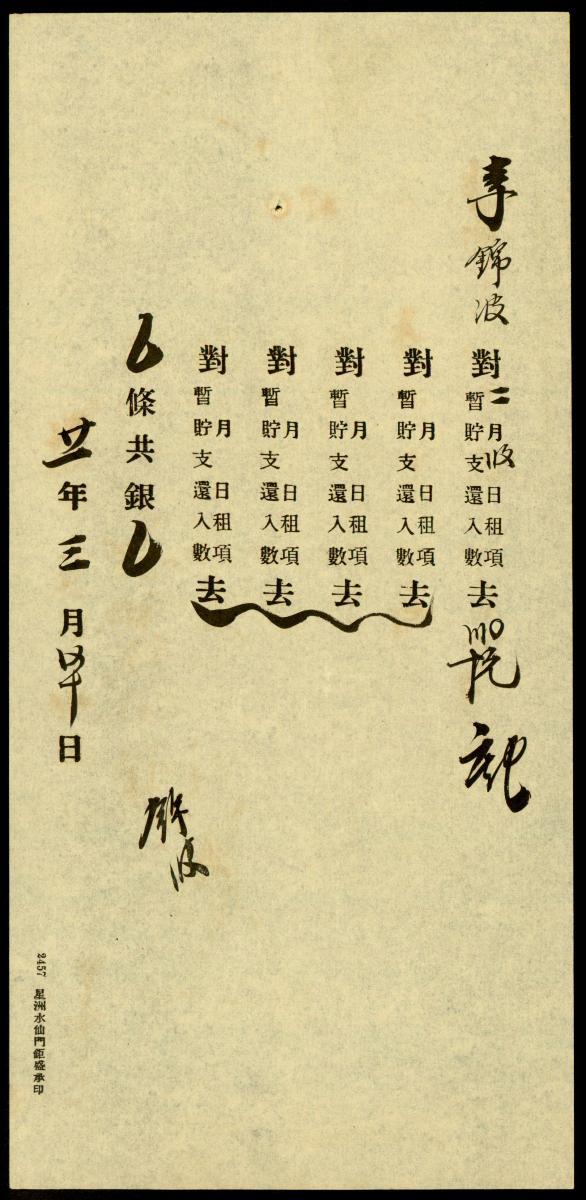 李錦波對二月收日暫貯支還入租項數去〣〇十元
對月日暫貯支還入租項數去
對月日暫貯支還入租項數去
對月日暫貯支還入租項數去
對月日暫貯支還入租項數去
條共銀
廿一年三月四十日
錦波
2457 星洲水仙門鉅盛承印